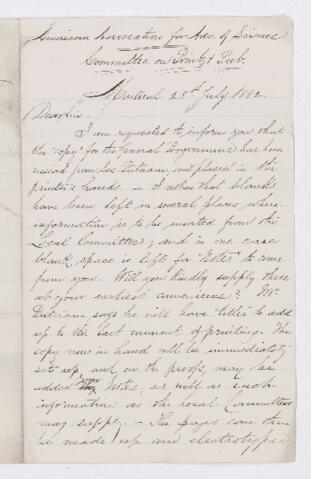 American Association for Adv. of Science
Committee on Print & Pub.
Montreal 25th July 1882
Dear Sir
I am requested to inform you that
the "copy" for the General Programme has been
received from Sec. Putnam, and placed in the
printer's hands. — I notice that blanks
have been left in several places where
information is to be inserted from the
Local Committee; and in one case
blank space is left for "Notes" to come
from you. Will you kindly supply these
at your earliest convenience? Mr.
Putnam says he will have little to add
up to the last moment of printing. The
copy now in hand will be immediately
set up and on the proofs may be
added Notes, as well as such
information as the Local Committee
may supply. — The pages can then
be made up and electrotyped